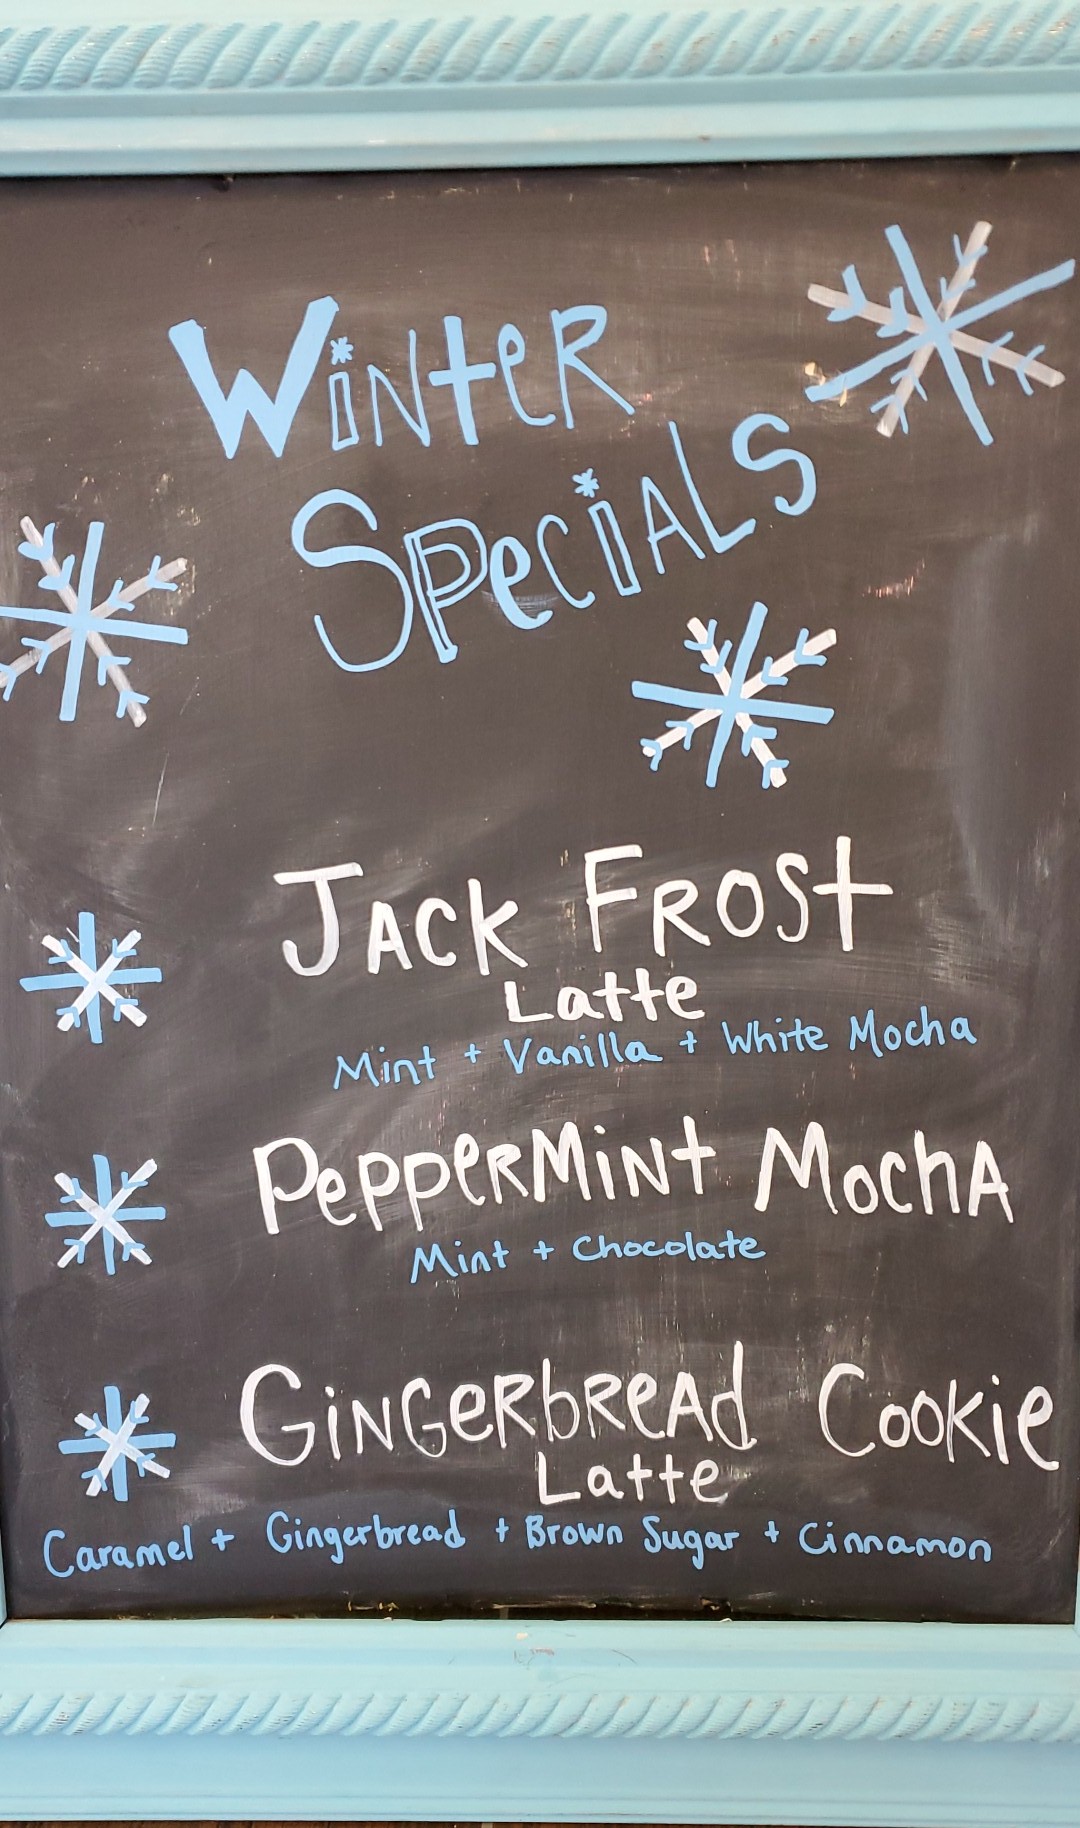 Winter
Specials
Jack Frost
Latte
Mint + Vanilla + White Mocha
Peppermint Mocha
Mint + Chocolate
Gingerbread Cookie
Latte
Caramel + Gingerbread + Brown Sugar + Cinnamon